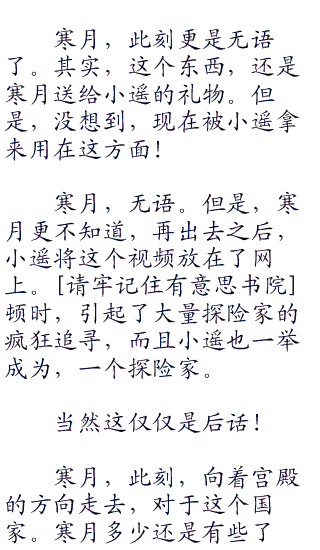 寒月，此刻更是无语
了。其实，这个东西，还是
寒月送给小遥的礼物。但
是，没想到，现在被小遥拿
来用在这方面！
寒月，无语。但是，寒
月更不知道，再出去之后，
小遥将这个视频放在了网
上。[请牢记住有意思书院]
顿时，引起了大量探险家的
疯狂追寻，而且小遥也一举
成为，一个探险家。
当然这仅仅是后话！
寒月，此刻，向着宫殿
的方向走去，对于这个国
家。寒月多少还是有些了